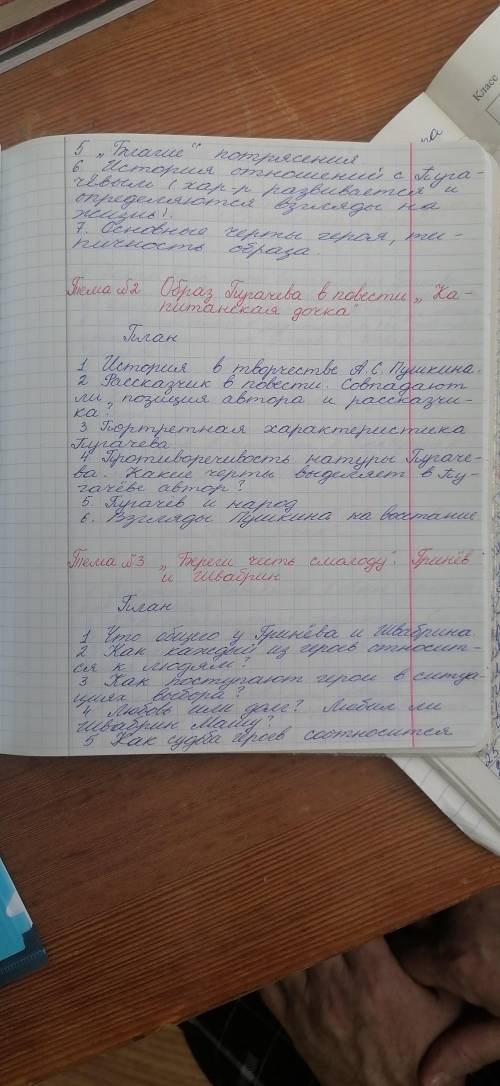 Класс
5 „Благие" потрясения
6. История отношений с Пуга-
чёвым (хар-р развивается и
определяются взгляды на
жизнь).
7. Основные черты героя, ти-
пичность образа.
Тема №2 Образ Пугачева в повести „Ка-
питанская дочка"
План
1 История в творчестве А.С. Пушкина.
2 Рассказчик в повести. Совпадают
ли позиция автора и рассказчи-
ка?
3 Портретная характеристика
Пугачева
4 Противоречивость натуры Пугаче-
ва. Какие черты выделяет в Пу-
гачёве автор?
5 Пугачёв и народ
6. Взгляды Пушкина на восстание
Тема №3 „Береги честь смолоду". Гринёв
и Швабрин
План
1 Что общего у Гринёва и Швабрина
2 Как каждый из героев относит-
ся к людям?
3 Как поступают герои в ситуа-
циях выбора?
4 Любовь или долг? Любил ли
Швабрин Машу?
5 Как судьба героев соотносится